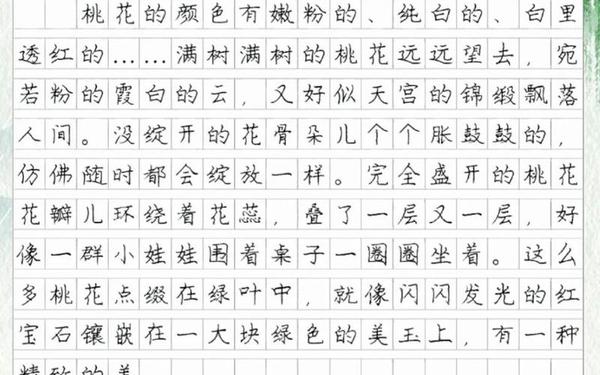 桃花的颜色有嫩粉的、纯白的、白里
透红的……满树满树的桃花远远望去，宛
若粉的霞白的云，又好似天宫的锦缎飘落
人间。没绽开的花骨朵儿个个胀鼓鼓的，
仿佛随时都会绽放一样。完全盛开的桃花
花瓣儿环绕着花蕊，叠了一层又一层，好
像一群小娃娃围着桌子一圈圈坐着。这么
多桃花点缀在绿叶中，就像闪闪发光的红
宝石镶嵌在一大块绿色的美玉上，有一种
精致的美